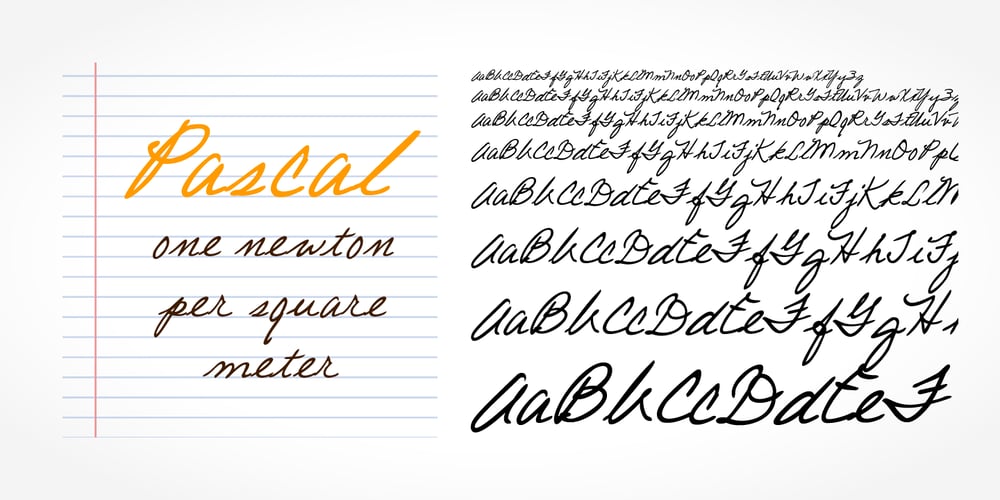 Pascal
one newton
per square
meter
aaBbCcDdEeFfGgHhIiJjKkLlMmNnOoPpQqRrSsTtUuVvWwXxYyZz
aaBbCcDdEeFfGgHhIiJjKkLlMmNnOoPpQqRrSsTtUuVvWwXxYyZz
aaBbCcDdEeFfGgHhIiJjKkLlMmNnOoPpQqRrSsTtUuVv
aaBbCcDdEeFfGgHhIiJjKkLlMmNnOoPp
aaBbCcDdEeFfGgHhIiJjKkLl
aaBbCcDdEeFfGgHhIiJj
aaBbCcDdEeFfGgH
aaBbCcDdEeF